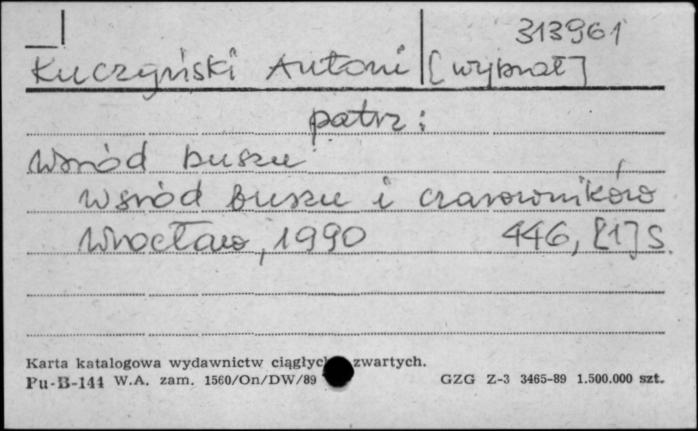 313961
Kuczyński Antoni [wybrał]
patrz:
Wśród buszu
Wśród buszu i czarowników
Wrocław, 1990 446, [1] s.
Karta katalogowa wydawnictw ciągłych zwartych.
Pu-B-144 W.A. zam. 1560/On/DW/89 GZG Z-3 3465-89 1.500.000 szt.